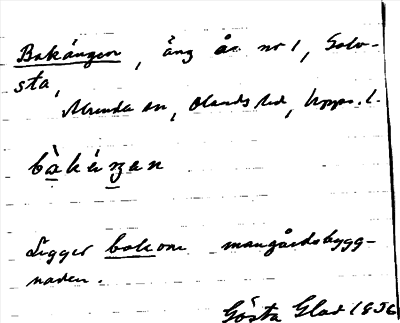 Bakängen, äng å nr 1, Salv-
sta,
Almunda sn, Olands hd, Upps. l.
bàkéŋan
Ligger bakom mangårdsbygg-
naden.
Gösta Glad 1956